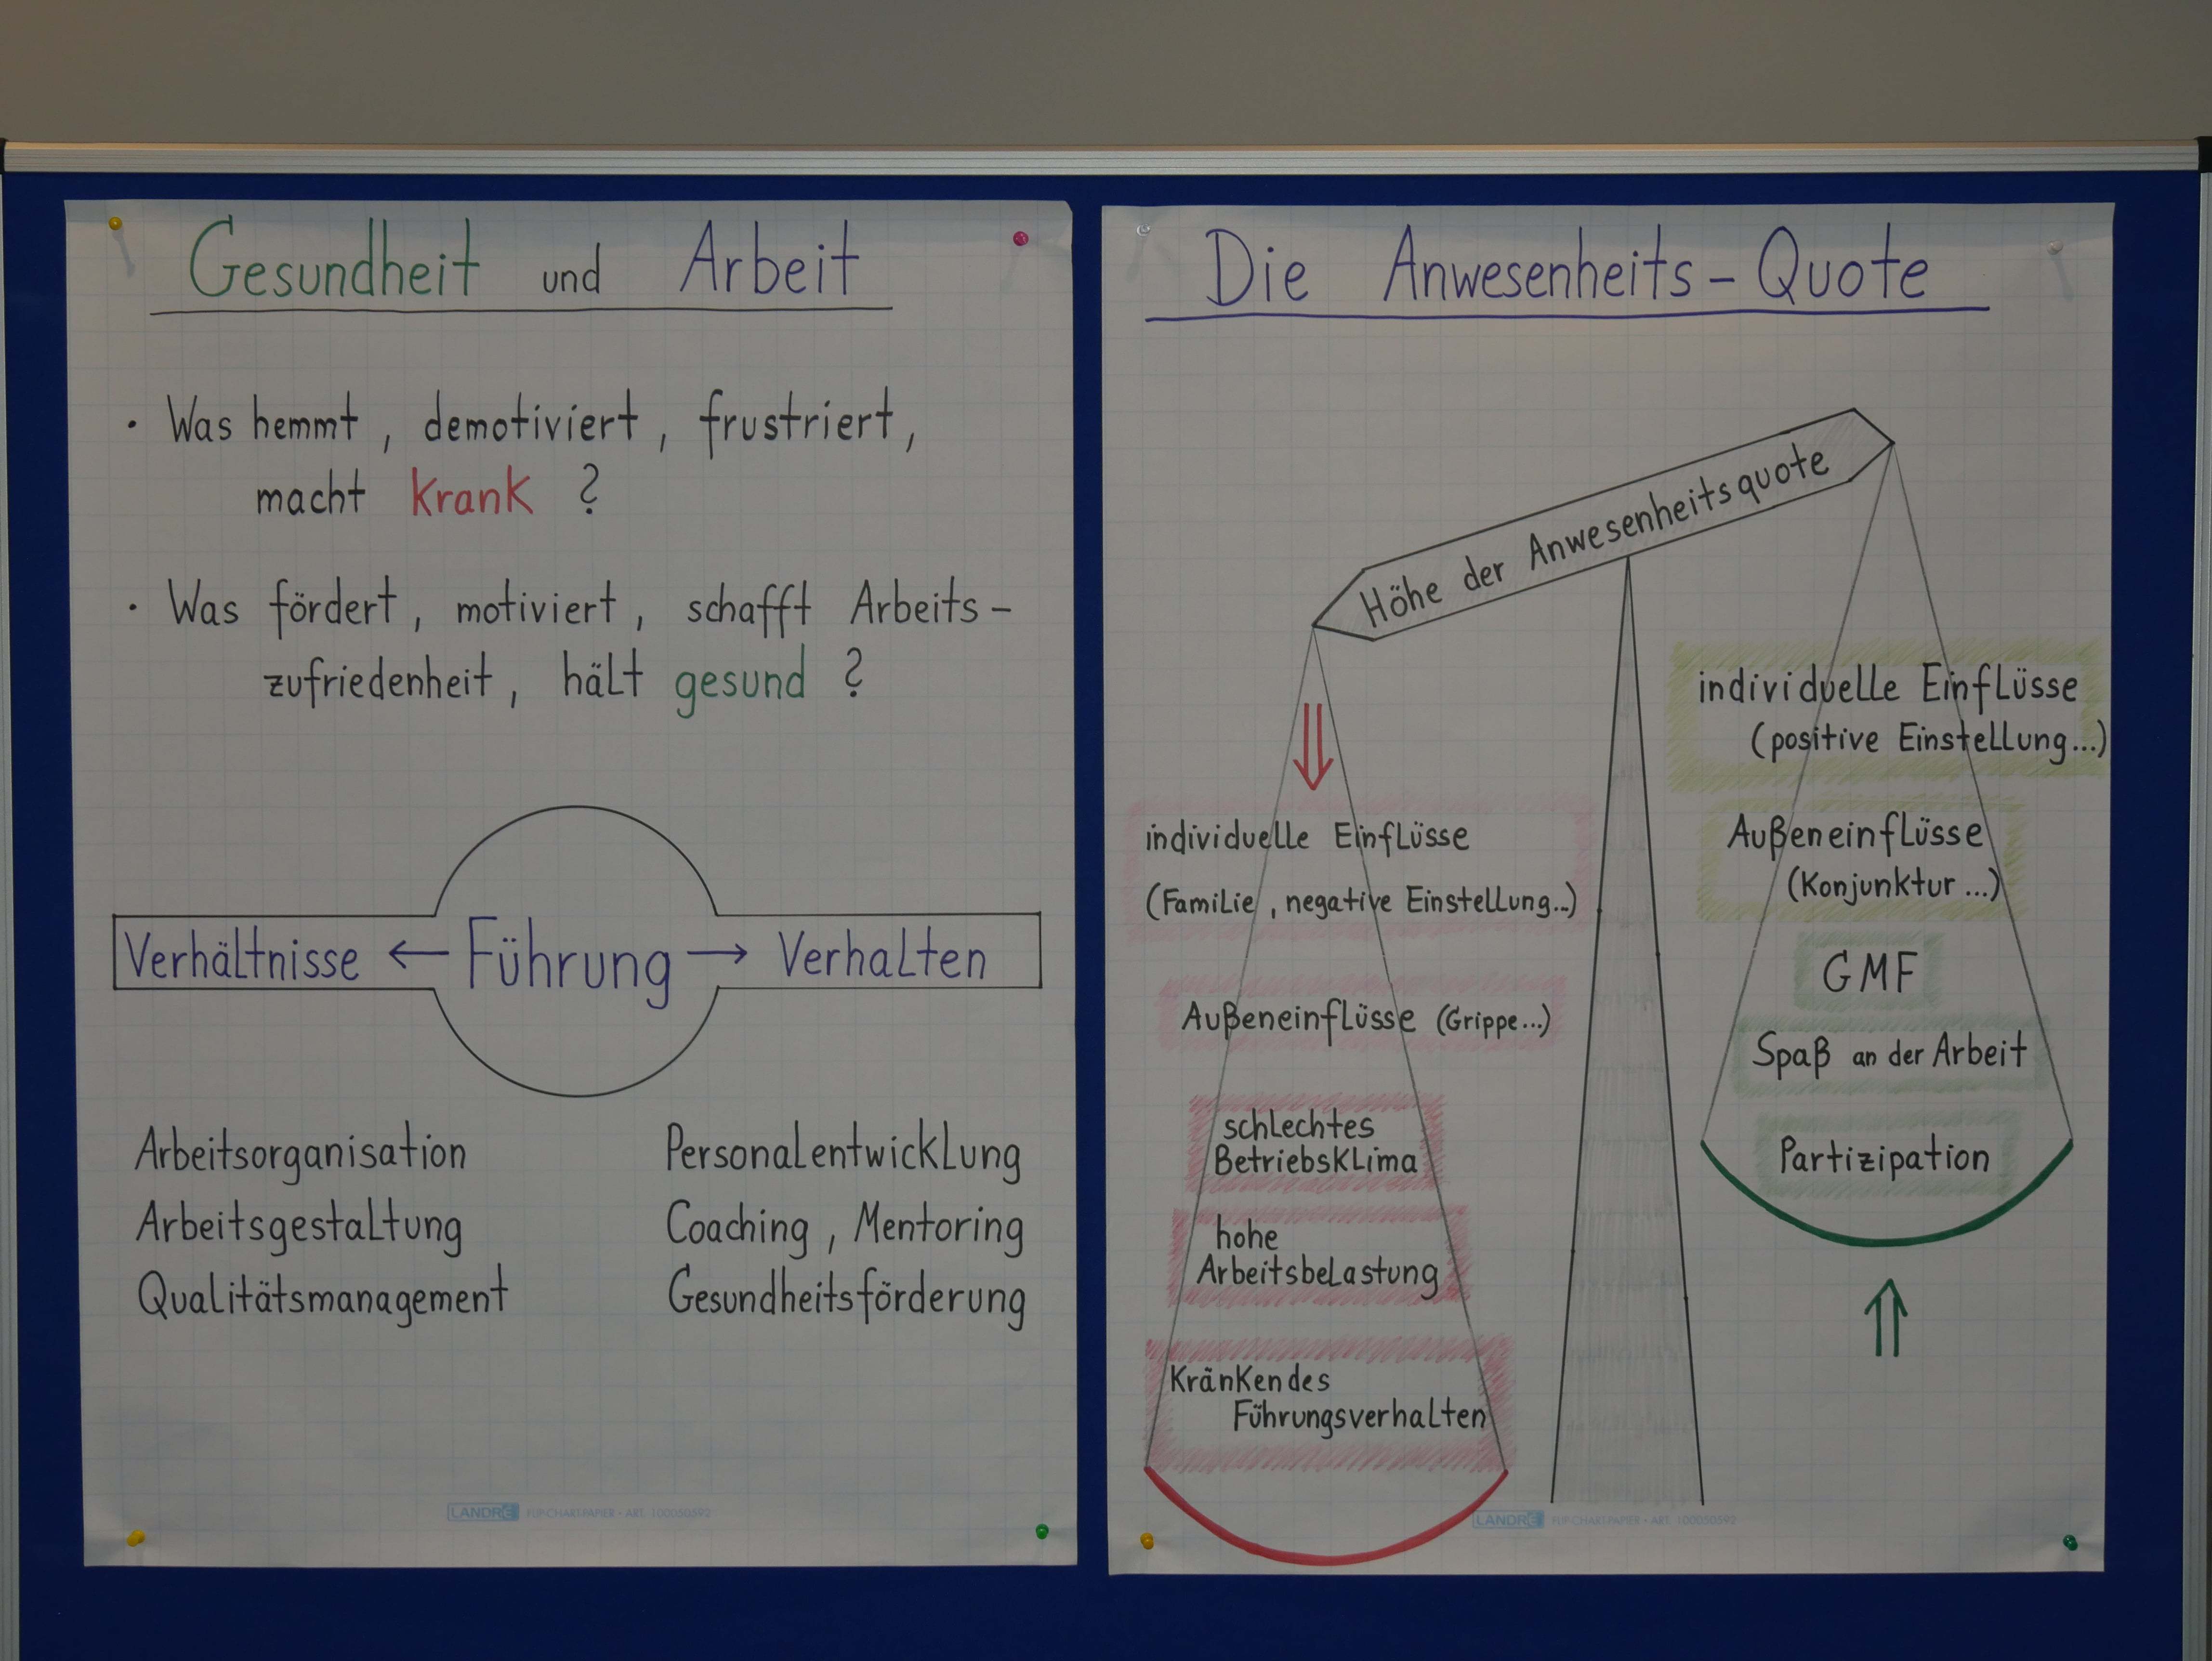 Gesundheit und Arbeit
· Was hemmt, demotiviert, frustriert,
macht krank ?
· Was fördert, motiviert, schafft Arbeits-
zufriedenheit, hält gesund ?
Verhältnisse ← Führung → Verhalten
Arbeitsorganisation
Arbeitsgestaltung
Qualitätsmanagement
Personalentwicklung
Coaching, Mentoring
Gesundheitsförderung
LANDRÉ FLIPCHARTPAPIER · ART. 100050592
Die Anwesenheits-Quote
Höhe der Anwesenheitsquote
individuelle Einflüsse
(Familie, negative Einstellung...)
Außeneinflüsse (Grippe...)
schlechtes
Betriebsklima
hohe
Arbeitsbelastung
Kränkendes
Führungsverhalten
individuelle Einflüsse
(positive Einstellung...)
Außeneinflüsse
(Konjunktur...)
GMF
Spaß an der Arbeit
Partizipation
LANDRÉ FLIPCHARTPAPIER · ART. 100050592